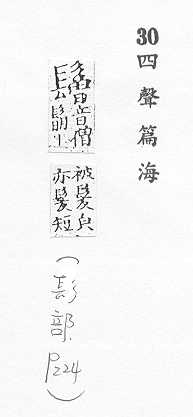 30 四聲篇海
音僧
被髮皃
亦髮短
(髟部. P224)